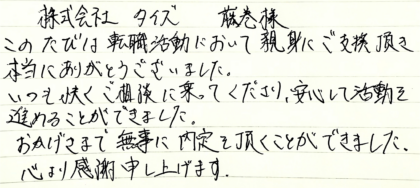 株式会社 タイズ 藤巻様
このたびは転職活動において親身にご支援頂き
本当にありがとうございました。
いつも快くご相談に乗ってくださり、安心して活動を
進めることができました。
おかげさまで無事に内定を頂くことができました。
心より感謝申し上げます。